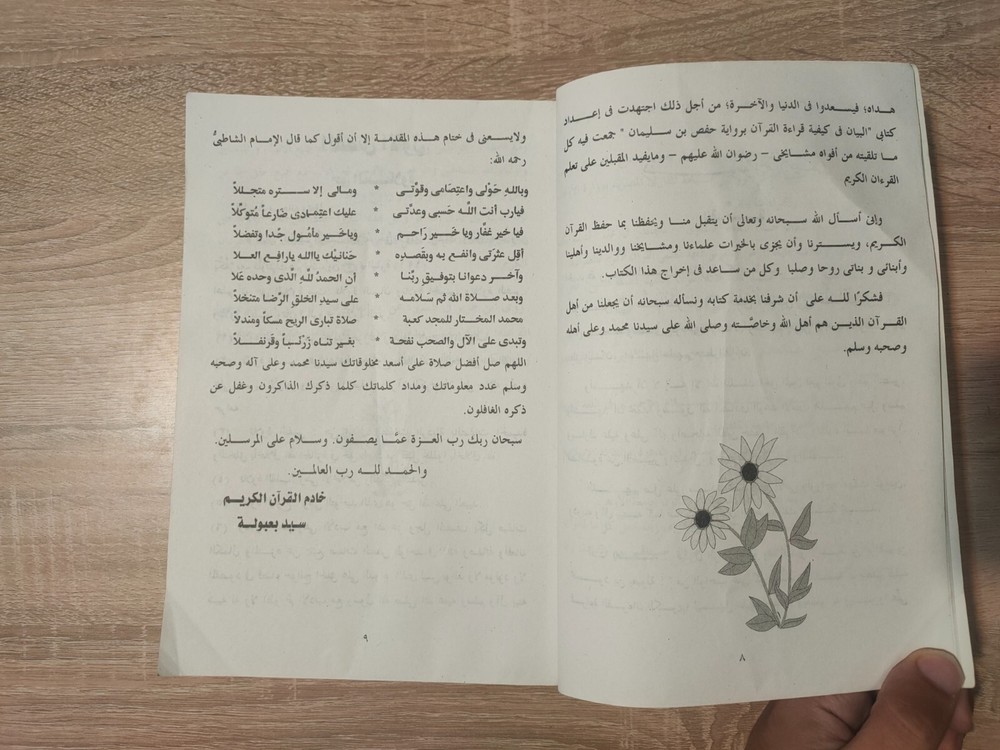 هداه؛ فيسعدوا فى الدنيا والآخرة؛ من أجل ذلك اجتهدت فى إعداد
كتابى "البيان فى كيفية قراءة القرآن برواية حفص بن سليمان " جمعت فيه كل
ما تلقيته من أفواه مشايخى – رضوان الله عليهم – ومايفيد المقبلين على تعلم
القرءان الكريم
وإنى أسأل الله سبحانه وتعالى أن يتقبل منا ويحفظنا بما حفظ القرآن
الكريم، ويسترنا وأن يجزى بالخيرات علماءنا ومشايخنا ووالدينا وأهلينا
وأبنائى و بناتى روحا وصلبا وكل من ساعد فى إخراج هذا الكتاب.
فشكرًا لله على أن شرفنا بخدمة كتابه ونسأله سبحانه أن يجعلنا من أهل
القرآن الذين هم أهل الله وخاصَّته وصلى الله على سيدنا محمد وعلى أهله
وصحبه وسلم.
٨
ولايسعنى فى ختام هذه المقدمة إلا أن أقول كما قال الإمام الشاطبىُّ
رحمه الله:
وبالله حَوْلى واعتِصَامى وقوَّتى * ومالى إلا ستره متجللاً
فيارب أنت اللَّه حَسبى وعدَّتى * عليك اعتِمادى ضَارعاً مُتوكِّلاً
فيا خير غفَّار ويا خير رَاحم * وياخير مأمُول جُدا وتفضلاً
أقِل عثرَتى وانفع به وبقَصدِه * حَنانيْك ياالله يارافِع العلا
وآخر دعوانا بتوفيقِ ربِّنا * أن الحمدُ للَّهِ الَّذى وحده عَلا
وبعد صلاة الله ثم سَلامه * على سيدِ الخلقِ الرِّضا متنخلاً
محمد المختار للمجد كعبة * صلاة تبارى الريح مسكاً ومندلاً
وتبدى على الآل والصحبِ نفحة * بغير تناه زَرْنباً وقرنفلاً
اللهم صل أفضل صلاة على أسعد مخلوقاتك سيدنا محمد وعلى آله وصحبه
وسلم عدد معلوماتك ومداد كلماتك كلما ذكرك الذاكرون وغفل عن
ذكره الغافلون.
سبحان ربك رب العزة عمَّا يصفون. وسلام على المرسلين.
والحمد لله رب العالمين.
خادم القرآن الكريم
سيد بعبولة
٩